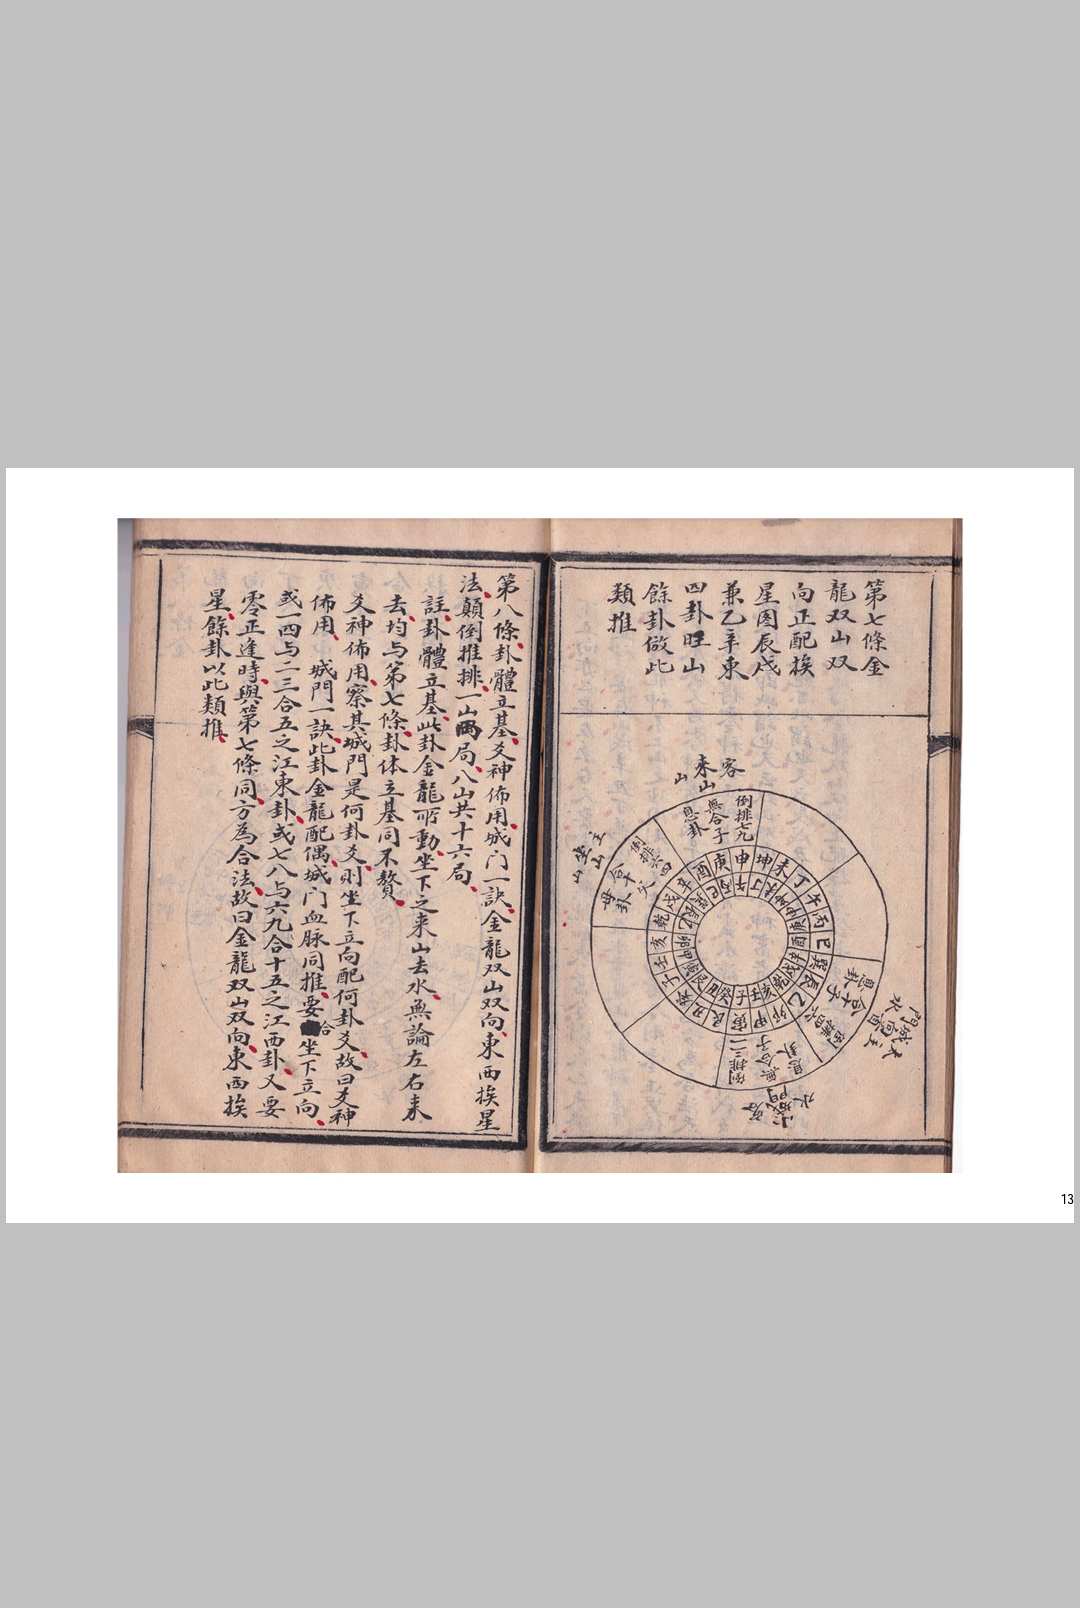 第七條金
龍双山双
向正配挨
星图辰戌
兼乙辛東
四卦旺山
餘卦倣此
類推
客
来山
山
主
山
倒排七九
無合子
息卦
倒排六四
合十父
母卦
申
庚
酉
辛
戌
乾
亥
壬
子
癸
丑
艮
寅
甲
卯
乙
辰
巽
巳
丙
午
丁
未
坤
息卦
合子
倒排二三
無合子
息卦
城門
水
第八條卦體立基爻神佈用城门一訣金龍双山双向東西挨星
法顛倒推排一山兩局八山共十六局
註卦體立基此卦金龍所動坐下之来山去水無論左右来
去均与第七條卦体立基同不贅
爻神佈用察其城門是何卦爻則坐下立向配何卦爻故曰爻神
佈用城門一訣此卦金龍配偶城门血脉同推要合坐下立向
或一四与二三合五之江東卦或七八与六九合十五之江西卦又要
零正逢時與第七條同方為合法故曰金龍双山双向東西挨
星餘卦以此類推
13